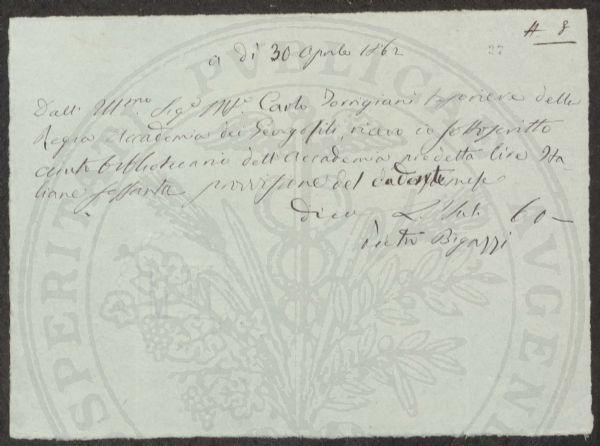 # 8
37
a dì 30 Aprile 1862
Dall' Ill.mo Sig.r M.se Carlo Torrigiani Tesoriere della
Regia Accademia dei Georgofili, ricevo io sottoscritto
aiuto bibliotecario dell'Accademia predetta lire Ita-
liane sessanta provvisione del cadente mese
dico L. Ital. 60 -
Pietro Bigazzi
PROSPERITATI PUBLICAE AUGENDAE